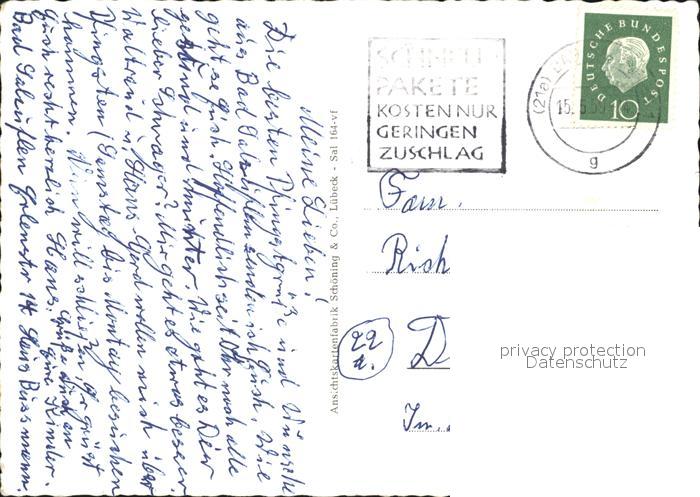 Meine Lieben!
Die besten Pfingstgrüße und Wünsche
aus Bad Salzuflen sende ich Euch. Wie
geht es Euch? Hoffendlich seit Ihr noch alle
gesund und munter. Wie geht es Dir
lieber Schwager? Mir geht es etwas besser.
Waltraud u. Hans-Gerd wollen mich über
Pfingsten (Samstag bis Montag) besuchen
kommen. Nun will schließen. Es grüßt
Euch recht herzlich Hans.
Grüße auch an
Eure Kinder.
Bad Salzuflen 14 Hans Bussmann.
Ansichtskartenfabrik Schöning & Co., Lübeck - Sal 164-vf
SCHNELL-
PAKETE
KOSTEN NUR
GERINGEN
ZUSCHLAG
(21a)
15.5.59
g
DEUTSCHE BUNDESPOST
10
Fam.
Rich
22
a.
D
Im
privacy protection
Datenschutz